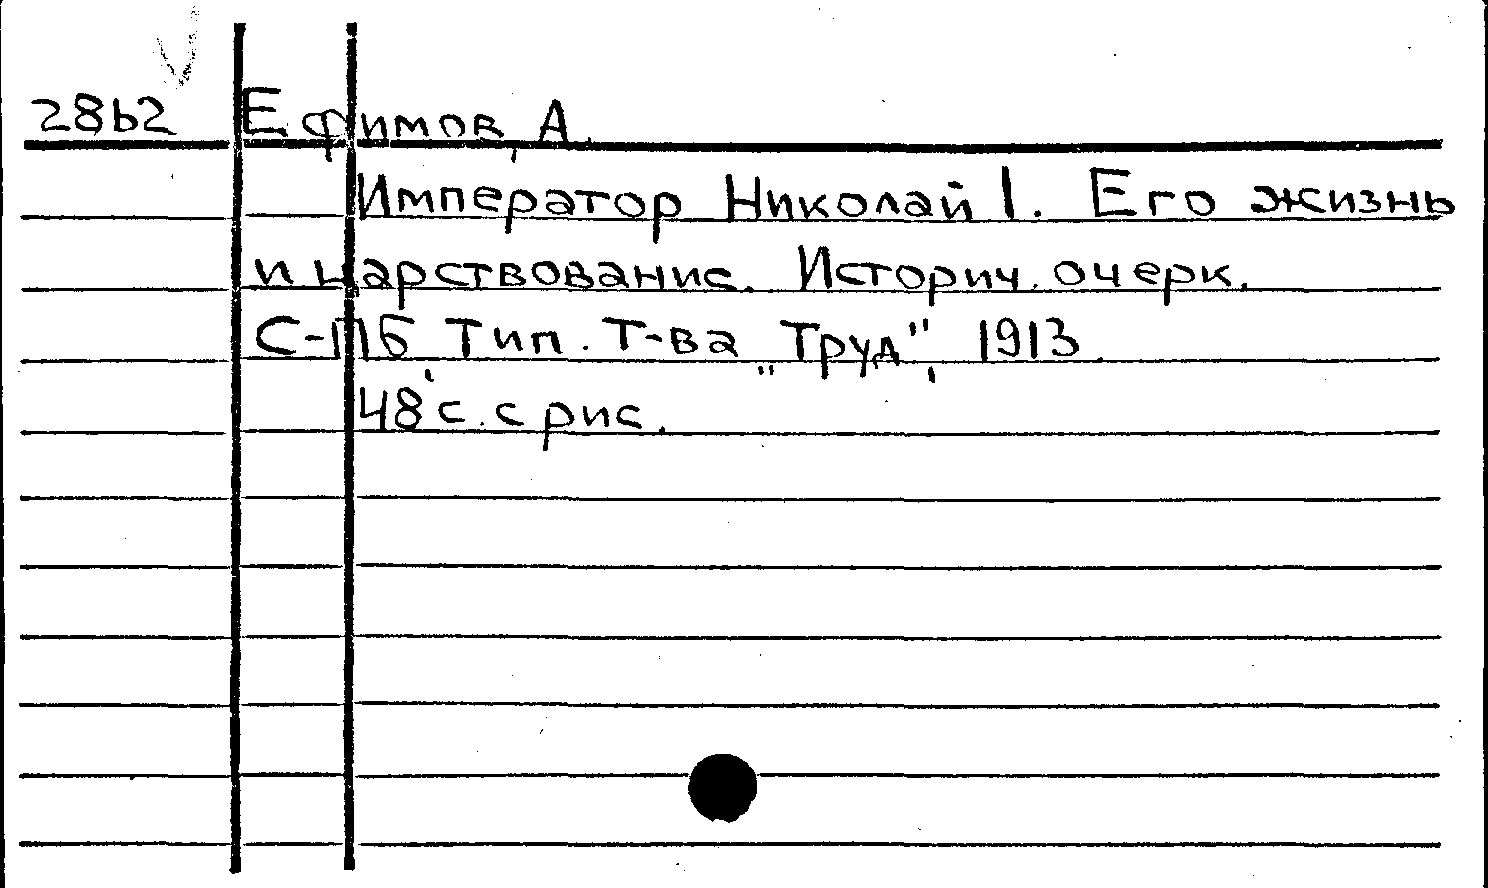 28b2 Ефимов, А.
Император Николай I. Его жизнь
и царствование. Историч. очерк.
С-ПБ, Тип. Т-ва „Труд", 1913.
48 с. с рис.